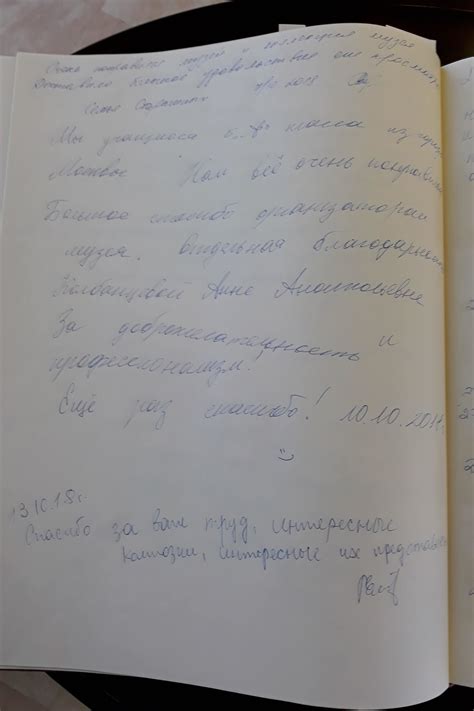 Очень понравился музей и экспозиция музея
Доставило большое удовольствие
Семья 2018
Мы учащиеся 6 "А" класса из города
Москвы Нам всё очень понравилось
Большое спасибо организаторам
музея. Отдельная благодарность
Анне Анатольевне
За доброжелательность и
профессионализм!
Ещё раз спасибо! 10.10.2018.
13.10.18г.
Спасибо за ваш труд, интересные
интересные их